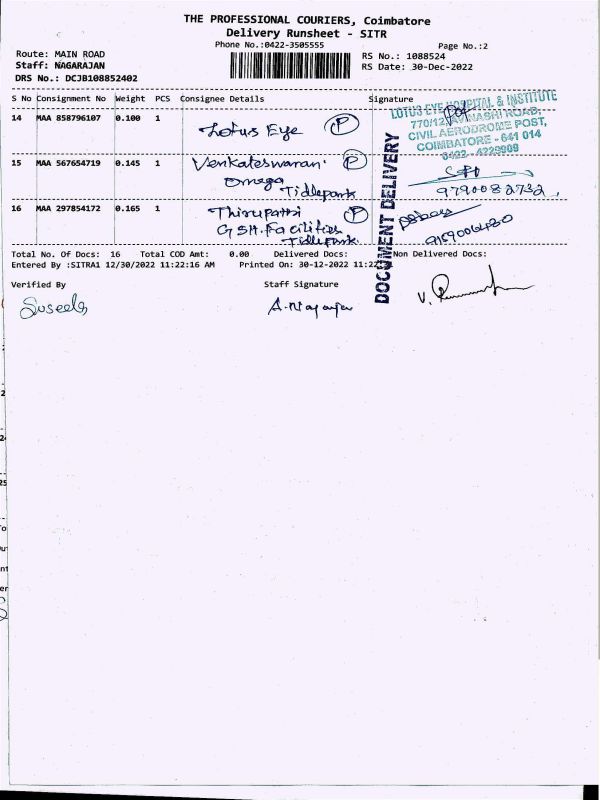 THE PROFESSIONAL COURIERS, Coimbatore
Delivery Runsheet - SITR
Phone No.:0422-3505555
Page No.:2
Route: MAIN ROAD
RS No.: 1088524
Staff: NAGARAJAN
RS Date: 30-Dec-2022
DRS No.: DCJB108852402
S No Consignment No Weight PCS Consignee Details Signature
14 MAA 858796107 0.100 1 Lotus Eye P
LOTUS EYE HOSPITAL & INSTITUTE
770/12, AVINASHI ROAD,
CIVIL AERODROME POST,
COIMBATORE - 641 014
0422 - 4229909
15 MAA 567654719 0.145 1 Venkateswaran P
Omega
Tidlepark
9790082732
16 MAA 297854172 0.165 1 Thirupathi P
GSH. Facilities
Tidlepark
9159006480
DOCUMENT DELIVERY
Total No. Of Docs: 16 Total COD Amt: 0.00 Delivered Docs: Non Delivered Docs:
Entered By :SITRA1 12/30/2022 11:22:16 AM Printed On: 30-12-2022 11:22
Verified By Staff Signature
Suseela A. Nagarajan